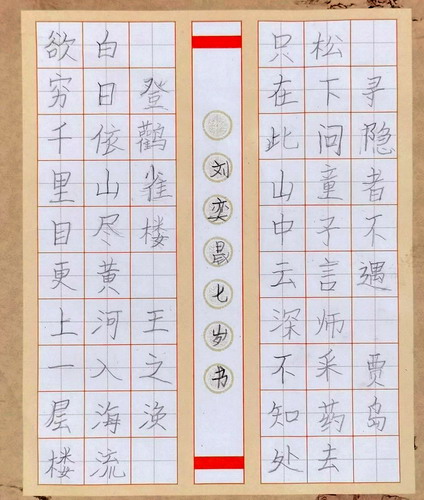 寻隐者不遇 贾岛
松下问童子言师采药去
只在此山中云深不知处
刘奕晨七岁书
登鹳雀楼 王之涣
白日依山尽黄河入海流
欲穷千里目更上一层楼